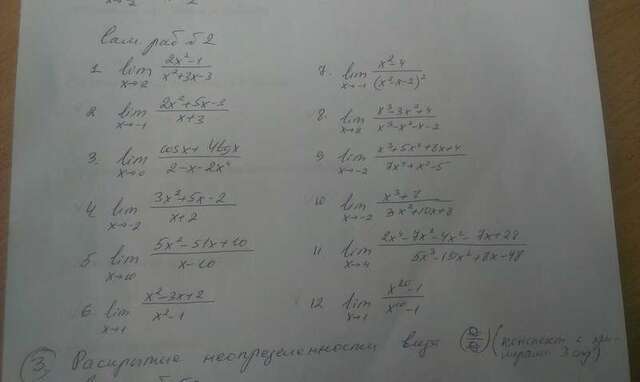 Сам. раб №2
1. lim x→2 (2x²-1)/(x²+3x-3)
2. lim x→-1 (2x²+5x-3)/(x+3)
3. lim x→0 (cosx + 4tgx)/(2-x-2x²)
4. lim x→-2 (3x²+5x-2)/(x+2)
5. lim x→10 (5x²-51x+10)/(x-10)
6. lim x→1 (x²-3x+2)/(x²-1)
7. lim x→-1 (x²-4)/(x²-x-2)²
8. lim x→2 (x³-3x²+4)/(x³-x²-x-2)
9. lim x→-2 (x³+5x²+8x+4)/(7x³+x²-5)
10. lim x→-2 (x³+8)/(3x²+10x+8)
11. lim x→4 (2x⁴-7x³-4x²-7x+28)/(5x³-15x²+8x-48)
12. lim x→1 (x²⁰-1)/(x¹⁰-1)
3. Раскрытие неопределенности вида (конспект с примерами 3 стр)